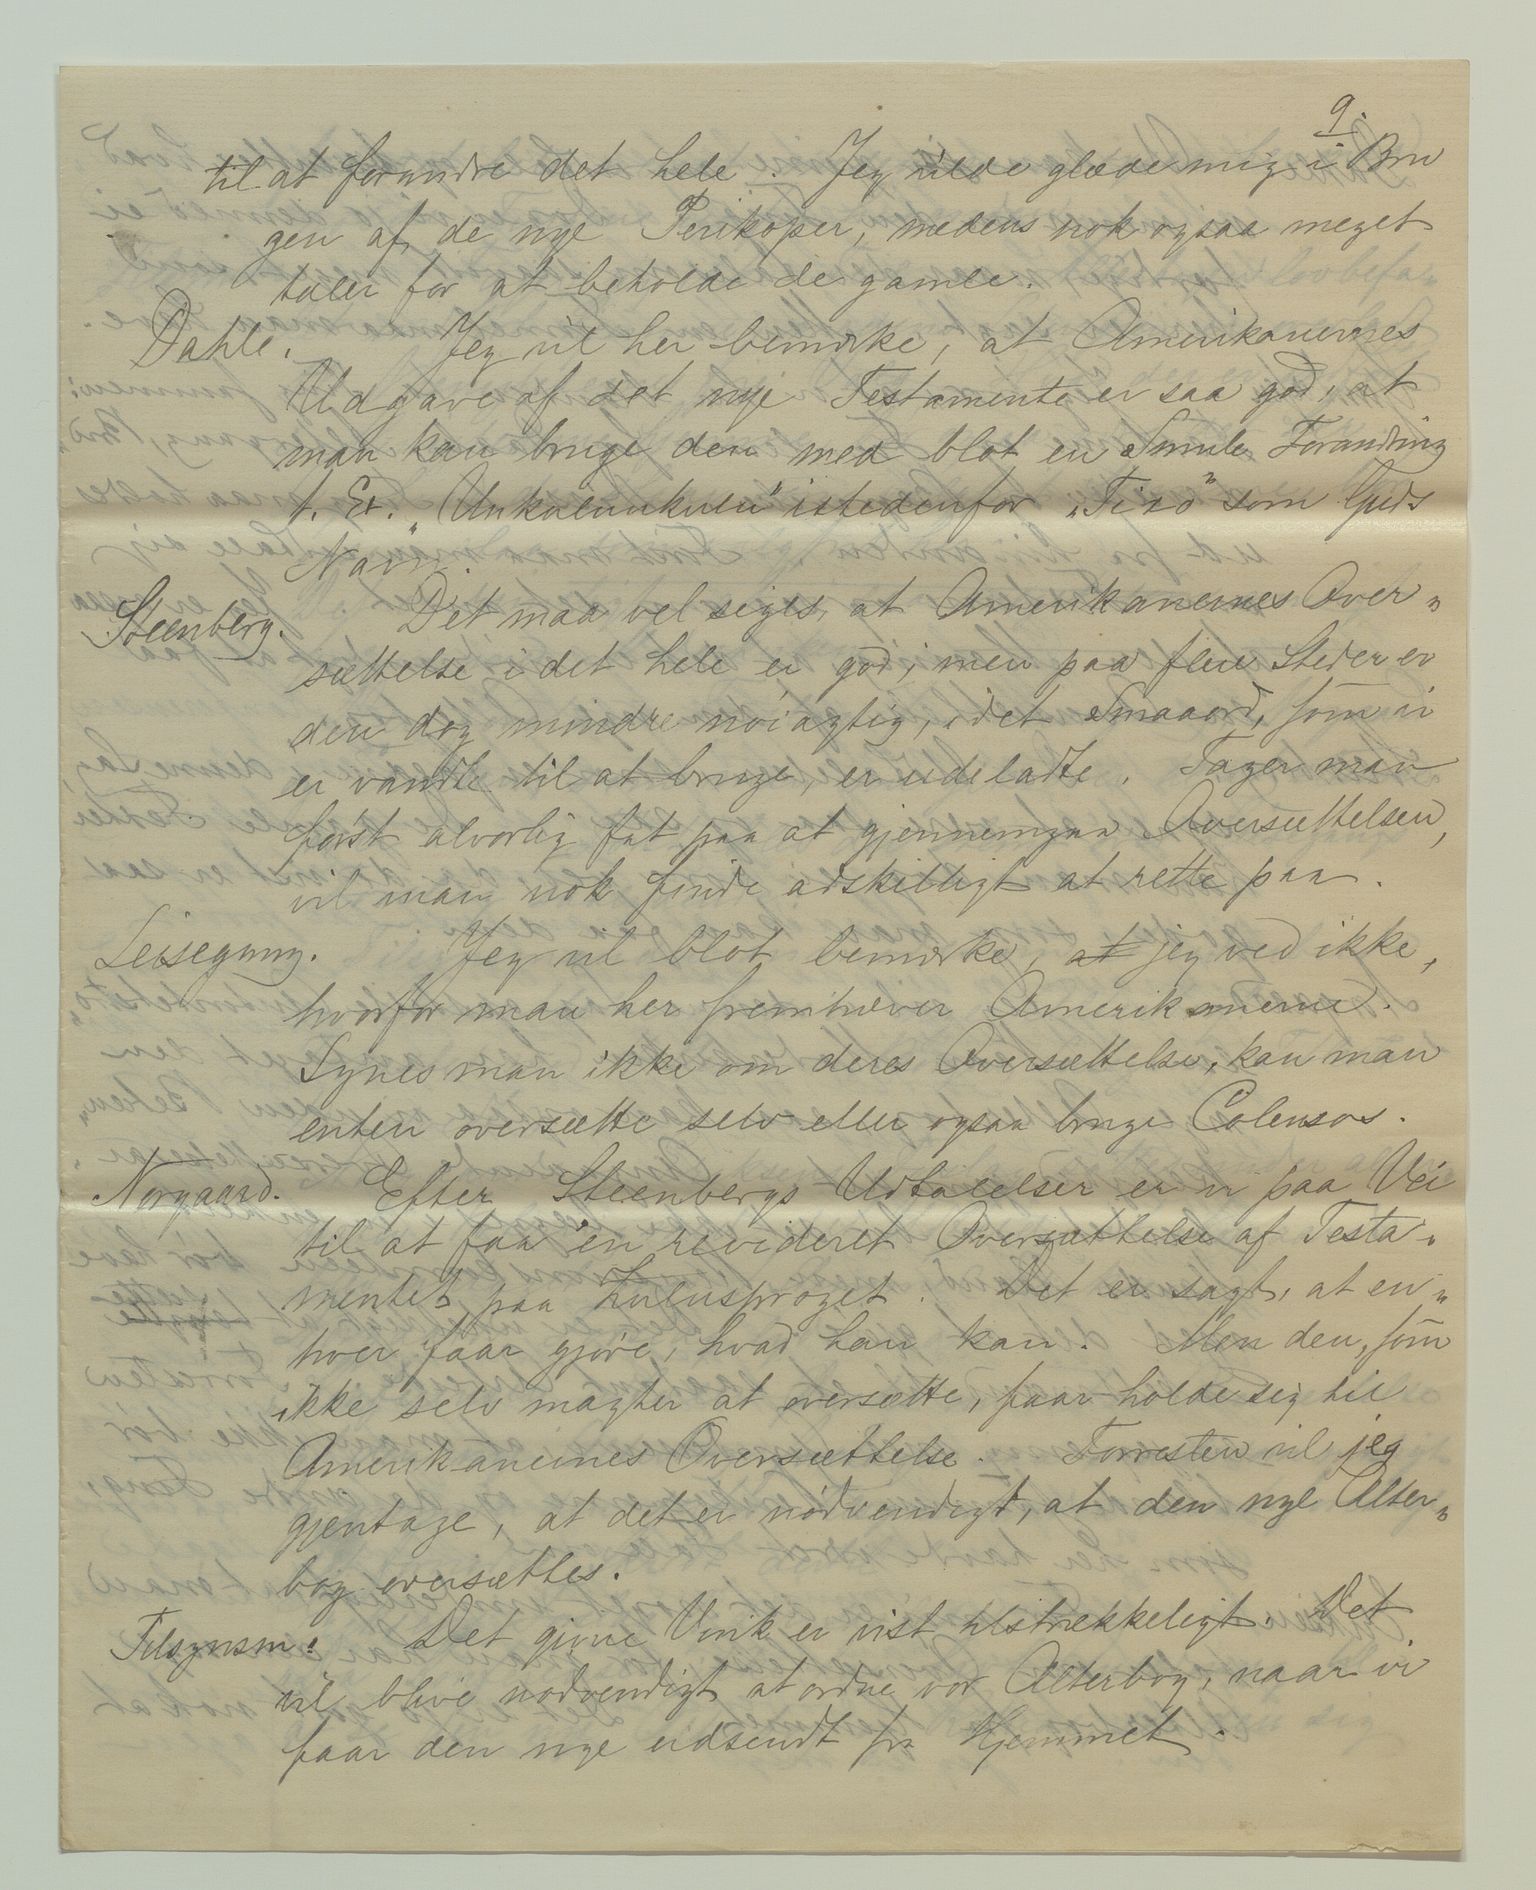 9.
til at forandre det hele. Jeg vilde glæde mig i Bru
gen af de nye Perikoper, medens nok ogsaa meget
taler for at beholde de gamle.
Dahle. Jeg vil her bemærke, at Amerikanernes
Udgave af det nye Testamente er saa god, at
man kan bruge den med blot en Smule Forandring
t. Ex. „Unkulunkulu" istedenfor „Tixo" som Guds
Navn.
Steenberg. Det maa vel siges, at Amerikanernes Over„
sættelse i det hele er god; men paa flere Steder er
den dog mindre nöiagtig, idet Smaaord, som vi
er vandte til at bruge, er udeladte. Tager man
först alvorlig fat paa at gjennemgaa Oversættelsen,
vil man nok finde adskilligt at rette paa.
Leisegang. Jeg vil blot bemærke, at jeg ved ikke,
hvorfor man her fremhæver Amerikanerne.
Synes man ikke om deres Oversættelse, kan man
enten oversætte selv eller ogsaa bruge Colensos.
Norgaard. Efter Steenbergs Udtalelser er vi paa Vei
til at faa en revideret Oversættelse af Testa„
mentet paa Zulusproget. Det er sagt, at en„
hver faar gjöre, hvad han kan. Men den, som
ikke selv magter at oversætte, faar holde sig til
Amerikanernes Oversættelse. Forresten vil jeg
gjentage, at det er nödvendigt, at den nye Alter„
bog oversættes.
Tilsynsm: Det givne Vink er vist tilstrækkeligt. Det
vil blive nodvendigt at ordne vor Alterbog, naar vi
faar den nye udsendt fra Hjemmet.